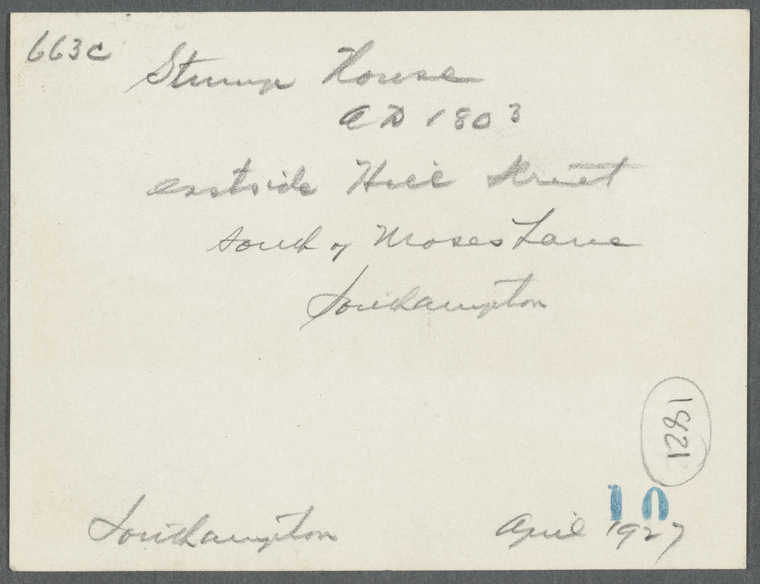 663c
Stump House
AD 1803
eastside Hill Street
South of Moses Lane
Southampton
1281
10
Southampton
April 1927